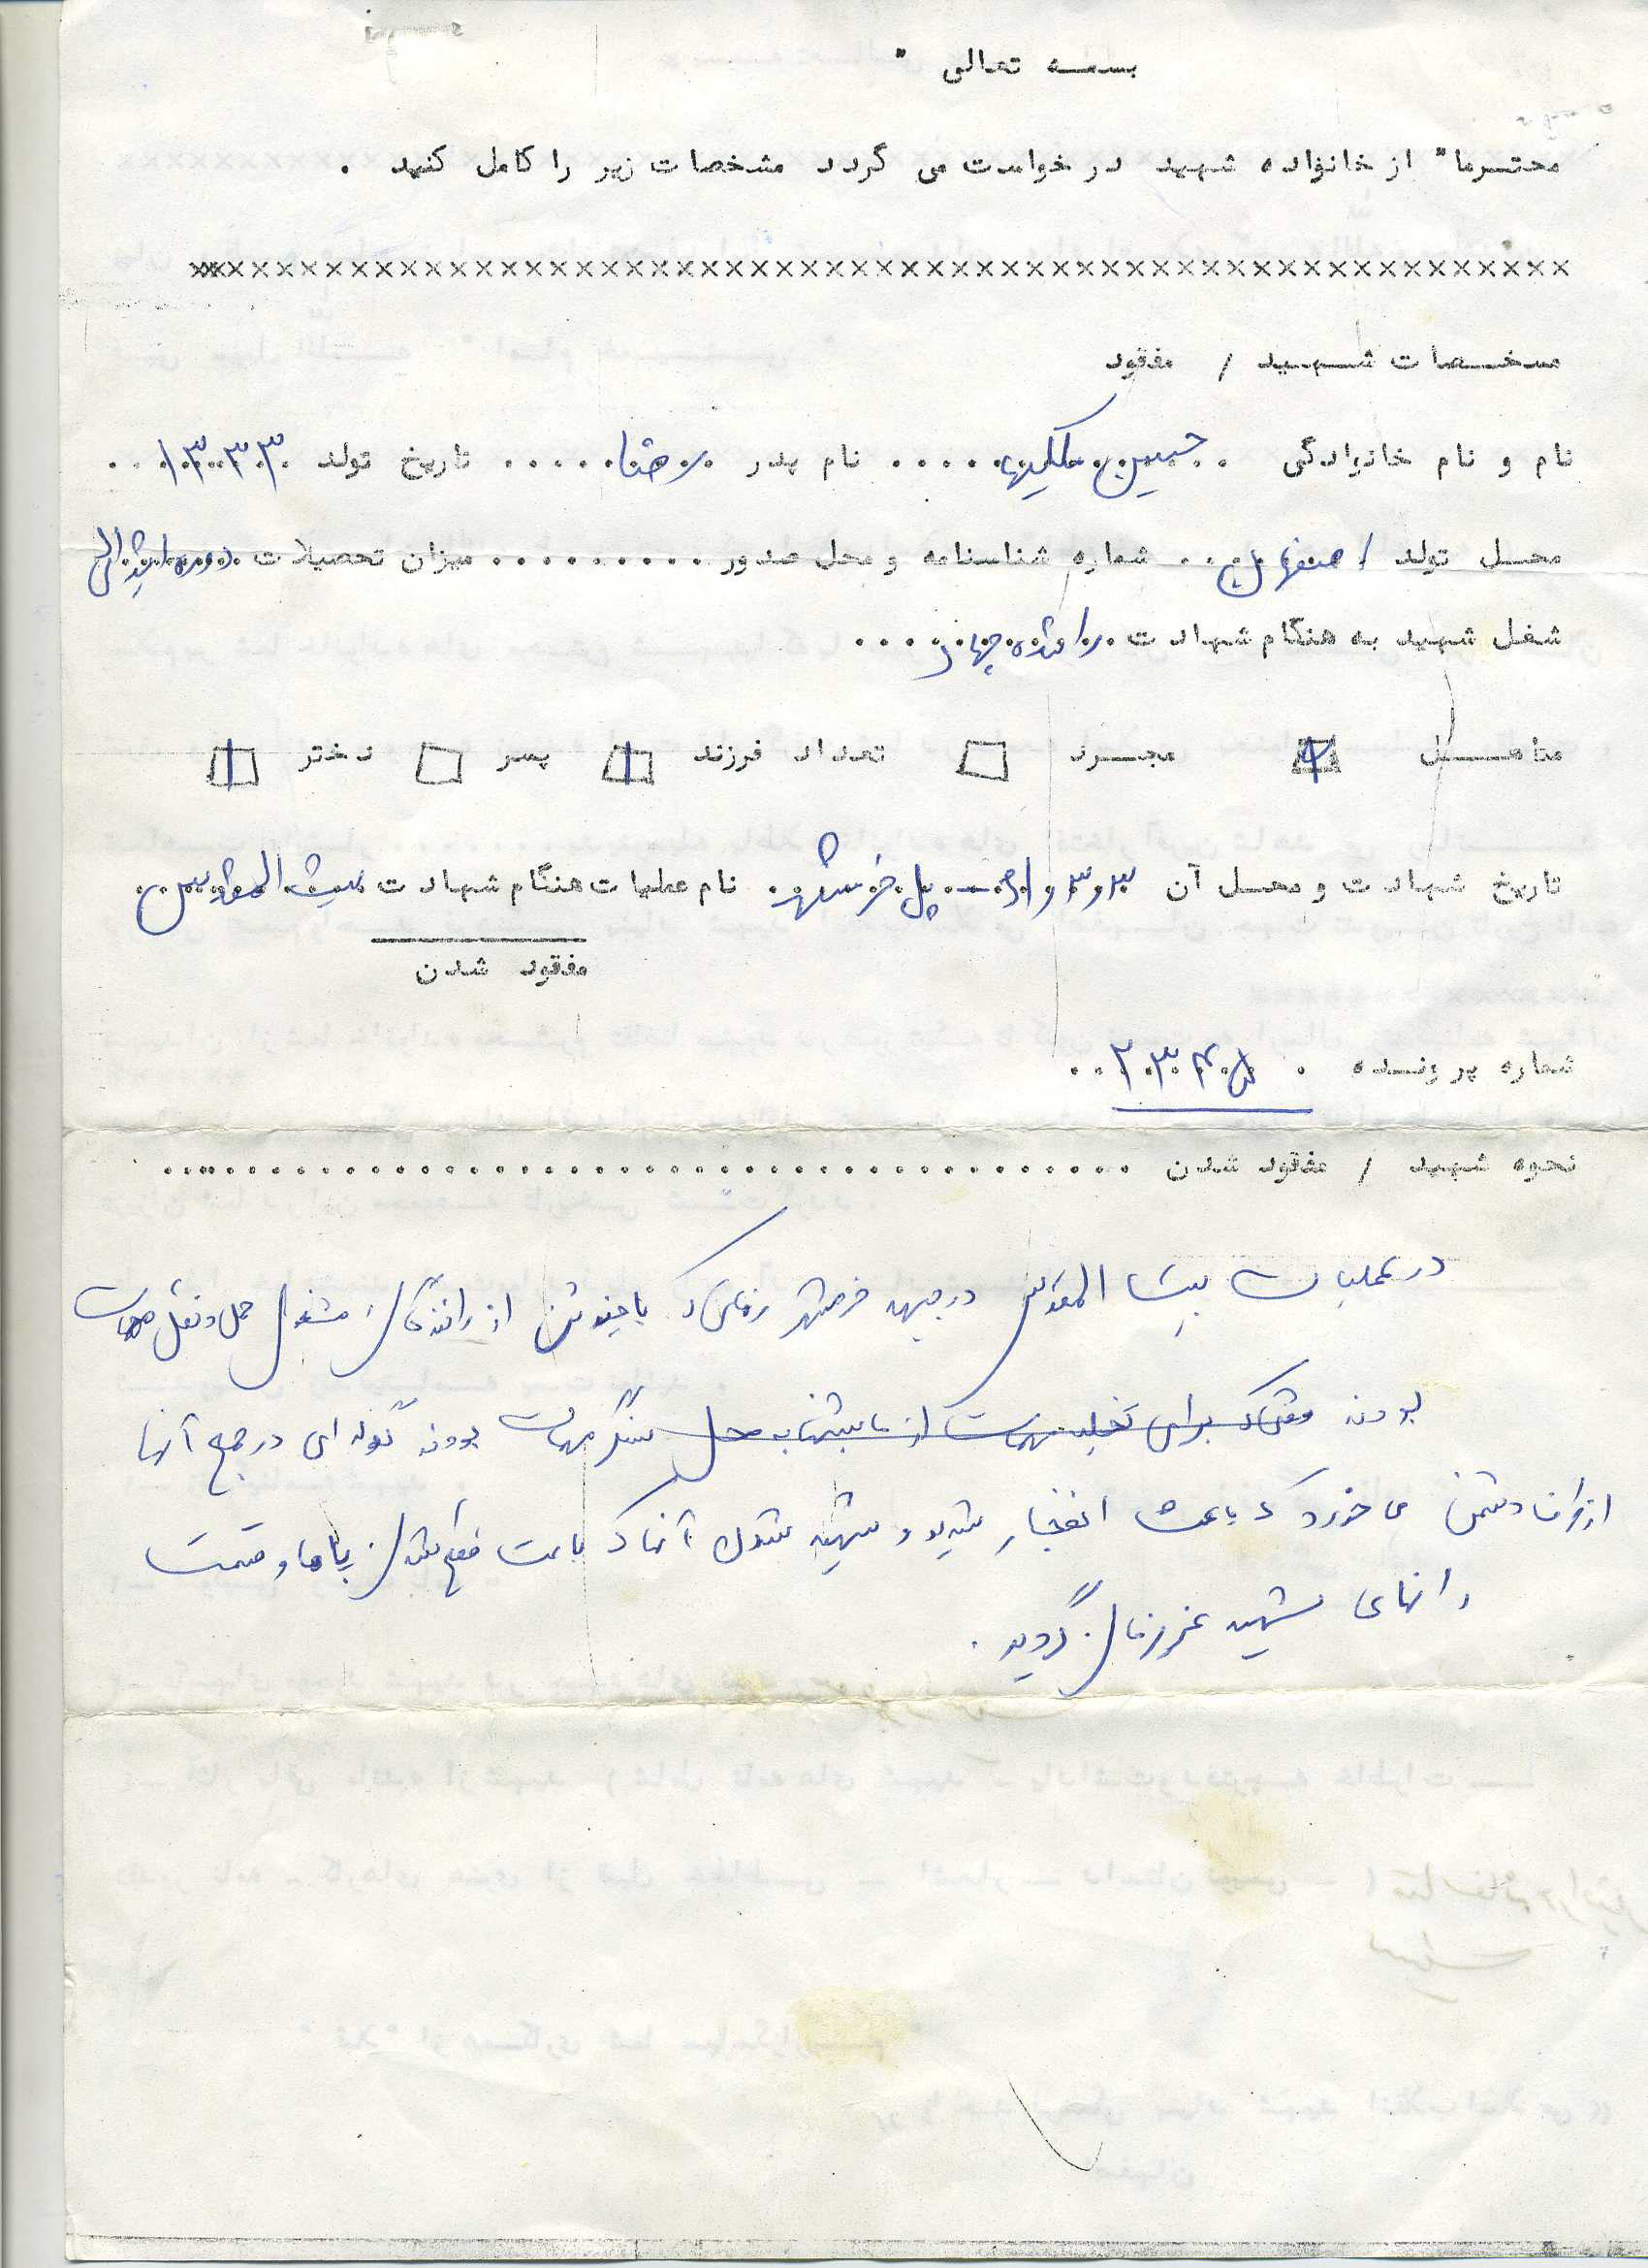 بسمه تعالی "
محترما" از خانواده شهید در خواست می گردد مشخصات زیر را کامل کنید .
×××××××××××××××××××××××××××××××××××××××××××××××××××××××
مشخصات شهید / مفقود
نام و نام خانوادگی . . حسین ملکیها . . . . نام پدر رضا . . . . . تاریخ تولد ۱۳۳۳ . . .
محل تولد اصفهان . . . شماره شناسنامه و محل صدور . . . . . . . . . میزان تحصیلات دوره ابتدائی
شغل شهید به هنگام شهادت راننده جهاد . . . .
متاهل مجرد تعداد فرزند ۱ پسر دختر ۱
تاریخ شهادت و محل آن ۳ر۳ر۶۱ - پل خرمشهر نام عملیات هنگام شهادت بیت المقدس
مفقود شدن
شماره پرونده . ۲۳۴۵ . .
نحوه شهید / مفقود شدن . . . . . . . . . . . . . . . . . . . . . . . . . . . . . . . . . . . . . . . .
در عملیات بیت المقدس در جبهه خرمشهر زمانی که با چند تن از رانندگان مشغول حمل و نقل مهمات
بودند وقتی که برای تخلیه مهمات از ماشینها به محل سنگر مهمات بودند گوله ای در جمع آنها
از طرف دشمن می خورد که باعث انفجار شدید و شهید شدن آنها که باعث قطع شدن پاها و قسمت
رانهای شهید عزیزمان گردید .